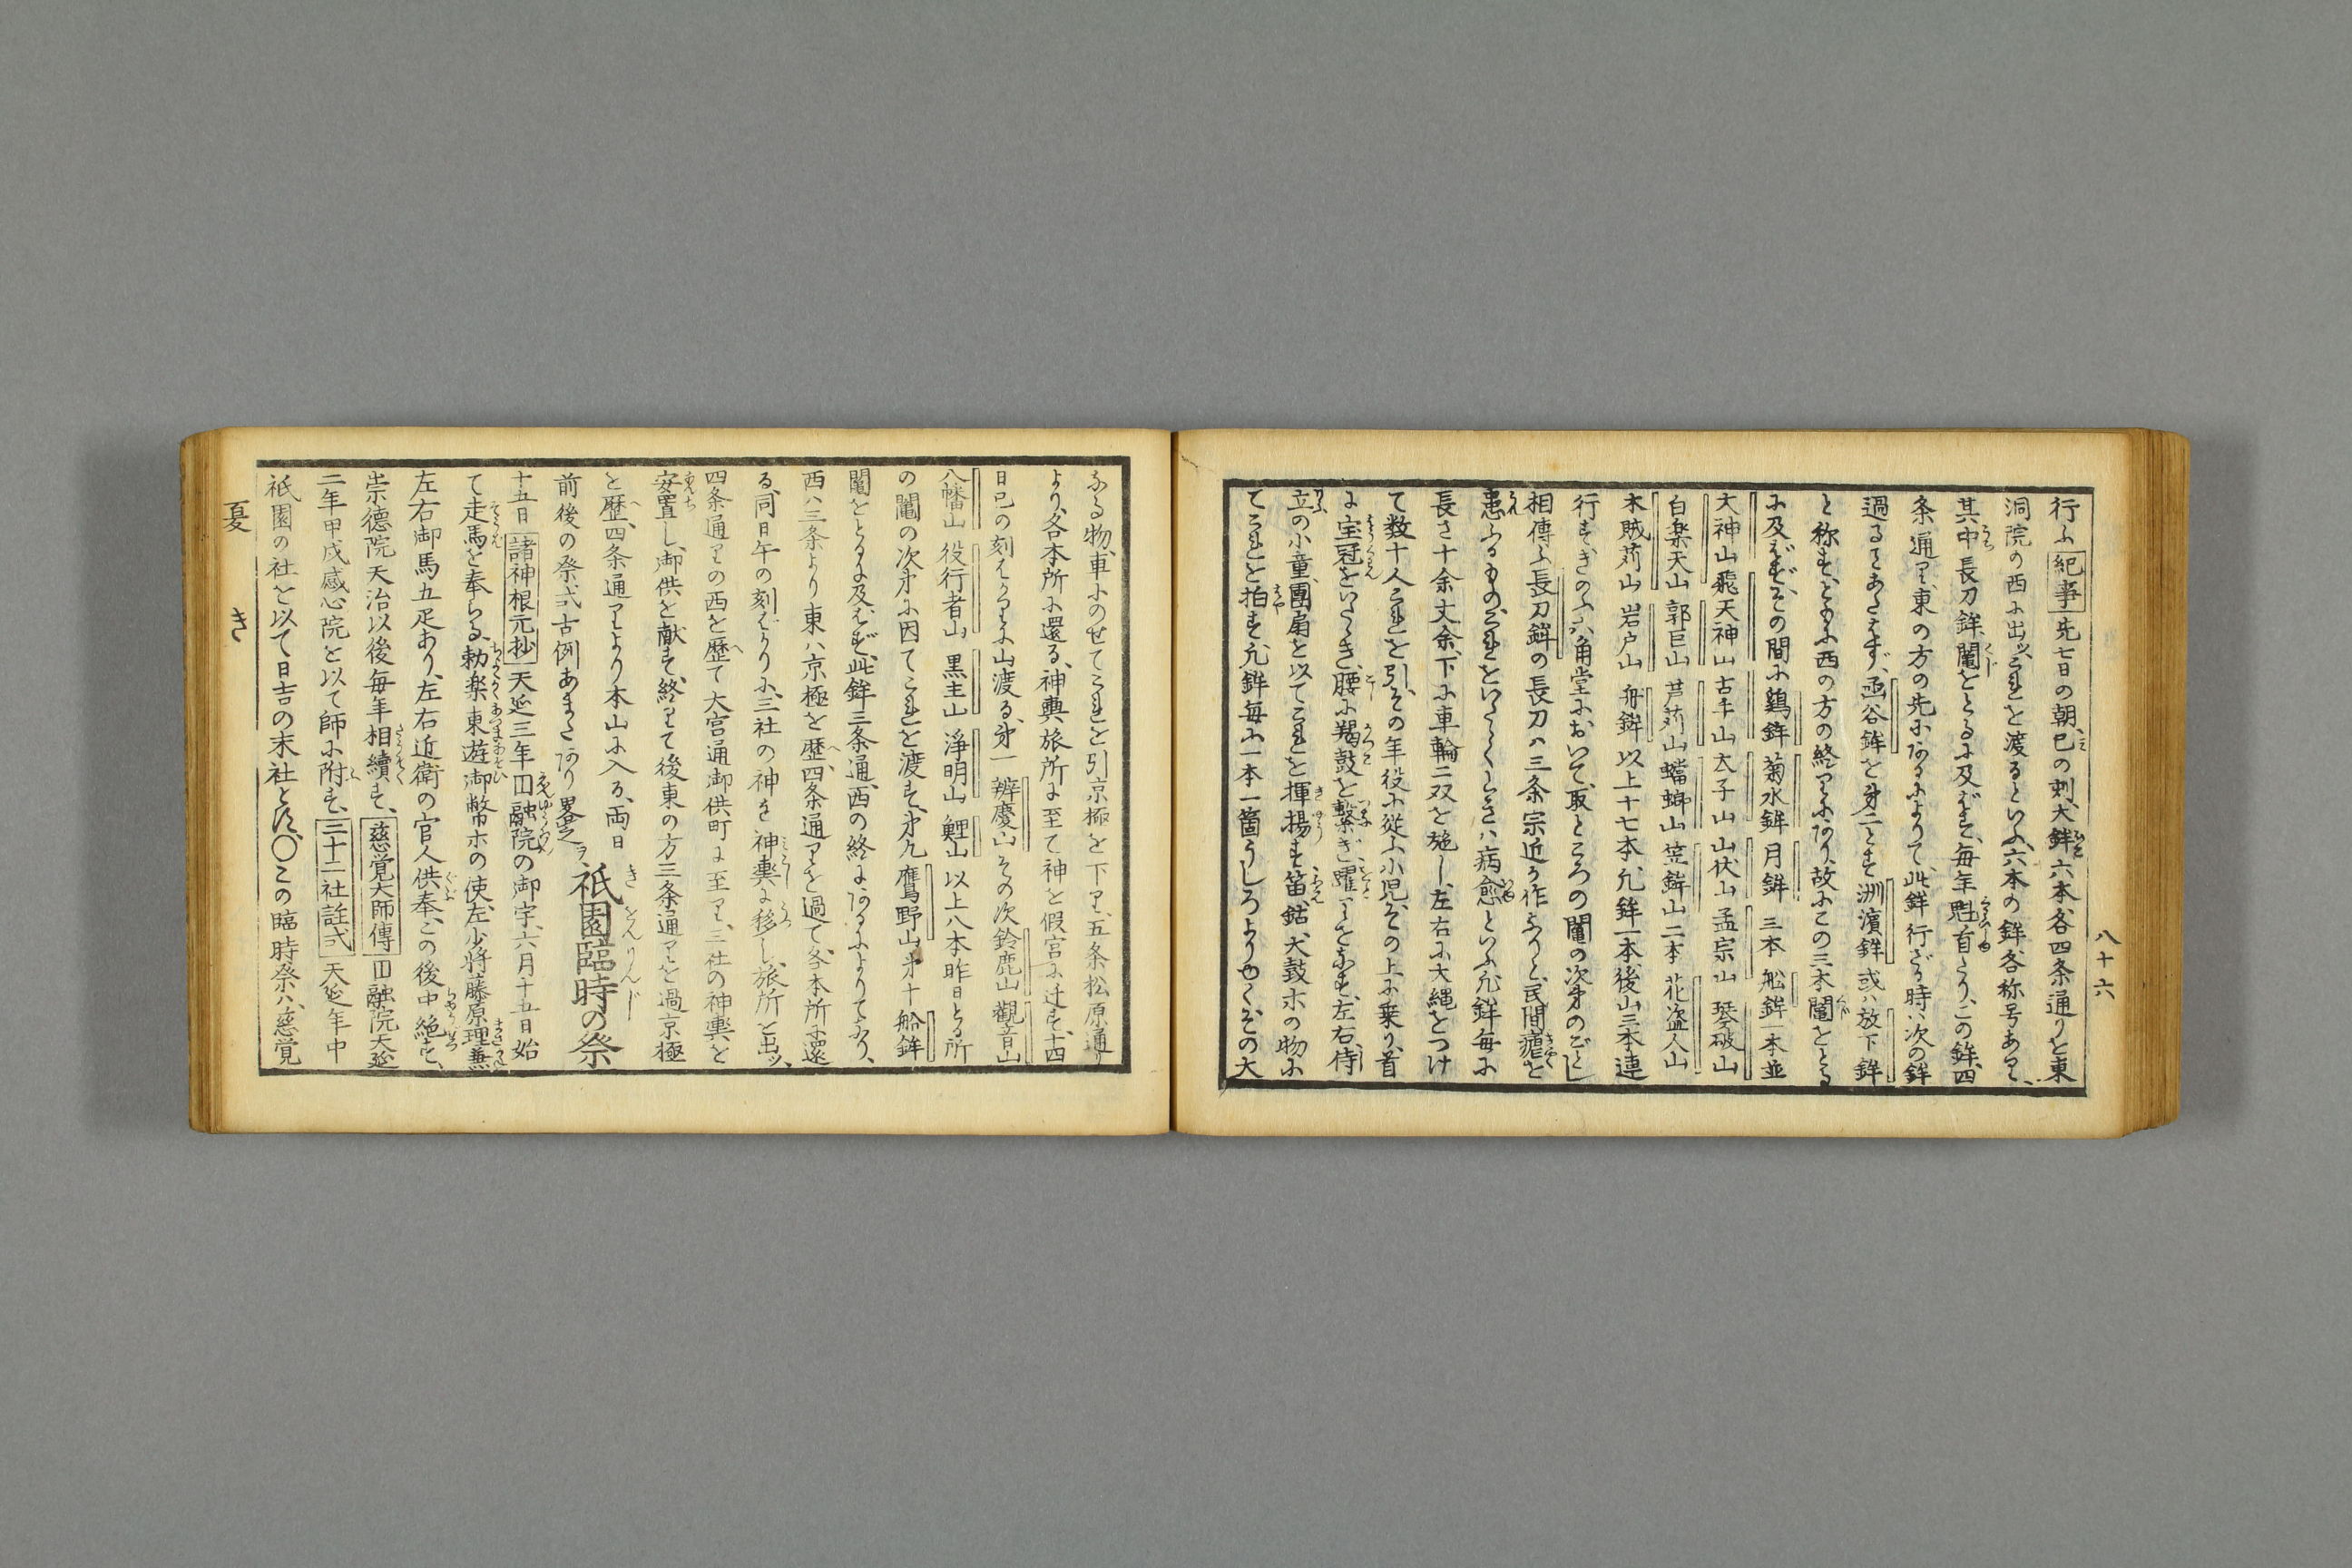 八十六
行ふ紀事先七日の朝、巳の刻、大鉾六本各四条通りを東
洞院の西に出ッ、これを渡るといふ、六本の鉾各称号あり、
其中長刀鉾、鬮をとるに及ばず、毎年魁首たり、この鉾、四
条通り、東の方の先にあるによりて、此鉾行ざる時ハ、次の鉾
過ることあたはず、函谷鉾を第二とす、洲濱鉾或ハ放下鉾
と称す、ともに西の方の終りにあり、故にこの三本鬮をとる
に及ばず、その間に、鷄鉾菊水鉾月鉾三本舩鉾一本並
大神山飛天神山古手山太子山山伏山孟宗山琴破山
白楽天山郭巨山芦苅山蟷螂山笠鉾山二本花盗人山
木賊苅山岩戸山舟鉾以上十七本、凢鉾一本後山三本連
行すぎのふ六角堂において、取ところの鬮の次第のごとし
相傳ふ長刀鉾の長刀ハ三条宗近が作なりと、民間瘧を
患ふるもの、これをいたゞくときハ病愈といふ、凢鉾毎に
長さ十余丈余、下に車輪二双を施し、左右に大縄をつけ
て数十人これを引、その年役に従ふ小児、その上に乗り、首
に宝冠をいたゞき、腰に羯鼓を繋ぎ、躍りをなす、左右、侍
立の小童、團扇を以てこれを揮揚す、笛、鈷、大鼓ホの物に
てこれを拍す、凢鉾毎に一本一箇うしろより巾くその大
なる物、車にのせてこれを引、京極を下り、五条松原通り
より、各本所に還る、神輿旅所に至て神を假宮に迁す、十四
日巳の刻ばかりに山渡る、第一辨慶山その次鈴鹿山觀音山
八幡山役行者山黒主山淨明山鯉山以上八本昨日とる所
の鬮の次第に因てこれを渡す、第九鷹野山第十船鉾
鬮をとるに及ばず、此鉾三条通、西の終にあるによりてなり、
西ハ三条より東ハ京極を歴、四条通りを過て、各本所に還
る、同日午の刻ばかりに、三社の神を神輿に移し、旅所を出ッ、
四条通りの西を歴て大宮通御供町に至り、三社の神輿を
安置し、御供を献ず、終りて後東の方三条通りを過京極
を歴、四条通りより本山に入る、両日
前後の祭、式古例あまたあり畧之ヲ祇園臨時の祭
十五日諸神根元抄天延三年円融院の御宇、六月十五日始
て走馬を奉らる、勅楽東遊御幣ホの使、左少将藤原理兼
左右御馬五疋あり、左右近衛の官人供奉、この後中絶す、
崇德院天治以後毎年相續す、慈覚大師傳円融院天延
二年甲戌感心院を以て師に附す、二十二社註式天延年中
祇園の社を以て日吉の末社とす、〇この臨時祭ハ、慈覚
夏
き